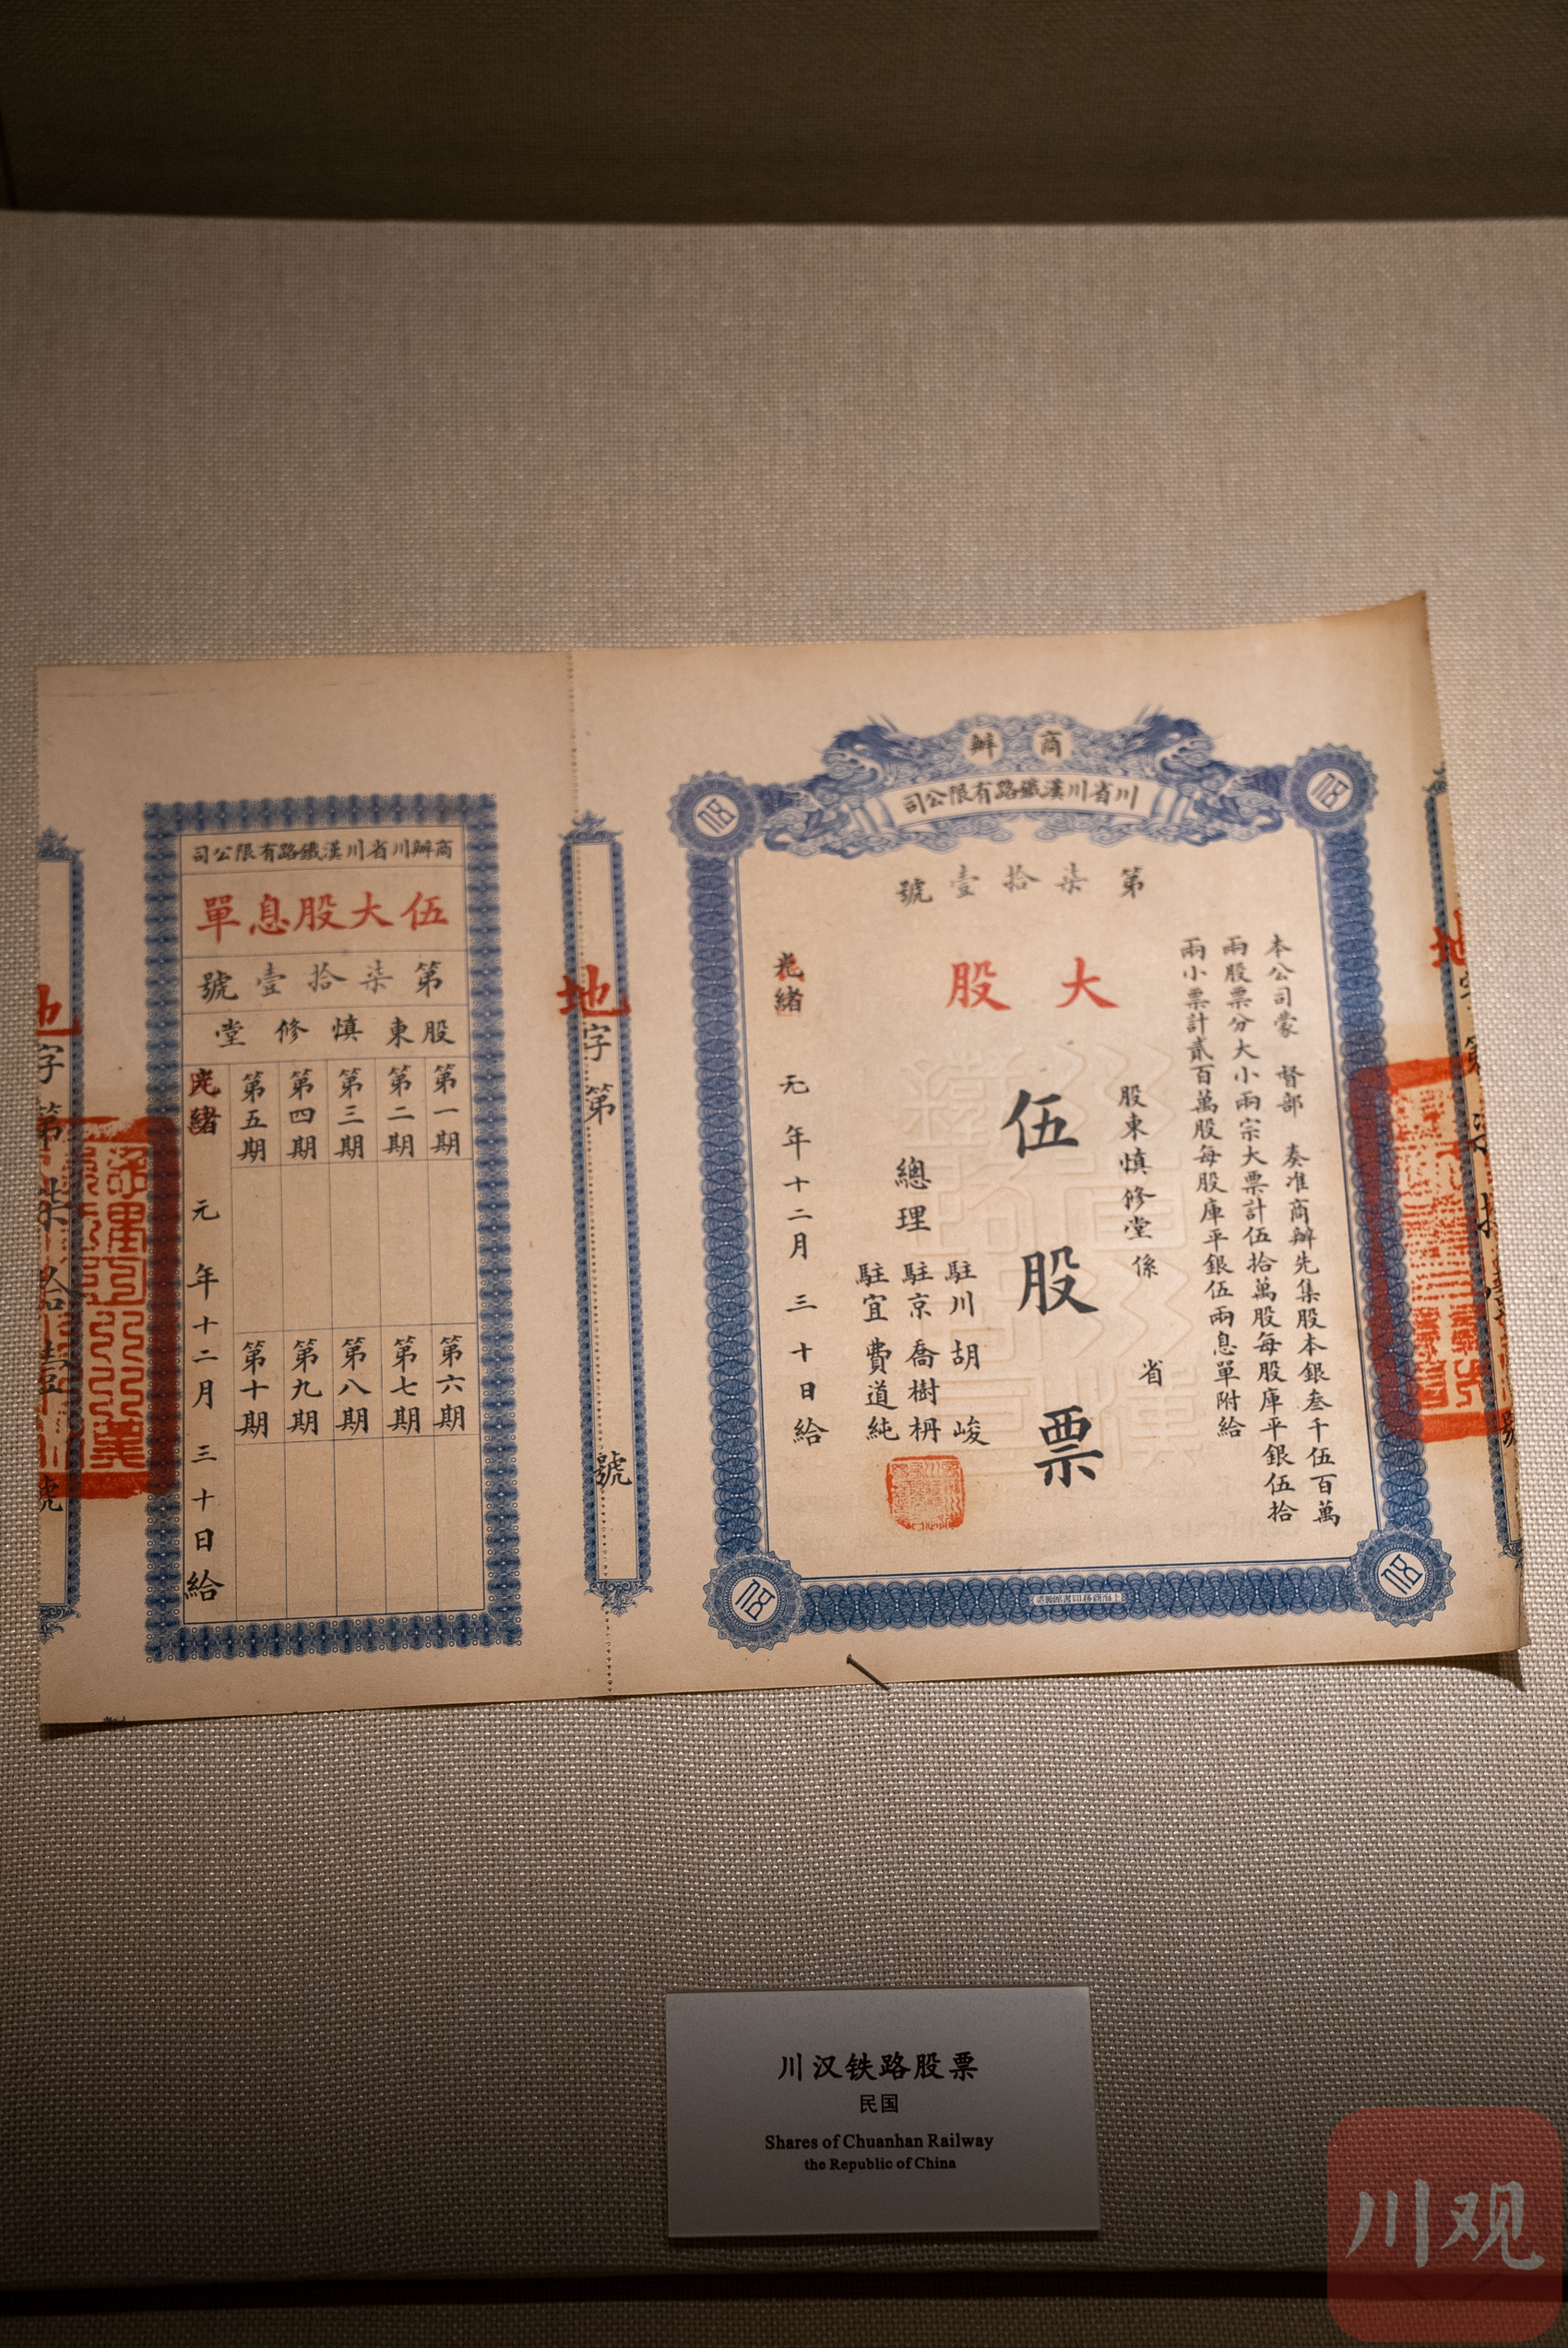 商辦
川省川漢鐵路有限公司
第柒拾壹號
大股
本公司蒙 督部 奏准商辦先集股本銀叁千伍百萬
兩股票分大小兩宗大票計伍拾萬股每股庫平銀伍拾
兩小票計貳百萬股每股庫平銀伍兩息單附給
股東慎修堂係 省
伍股票
總理
駐川胡峻
駐京喬樹枬
駐宜費道純
光緒 元年十二月三十日給
地字第 號
商辦川省川漢鐵路有限公司
伍大股息單
第柒拾壹號
股東慎修堂
第一期
第二期
第三期
第四期
第五期
第六期
第七期
第八期
第九期
第十期
光緒 元年十二月三十日給
地字第柒拾壹號
川汉铁路股票
民国
Shares of Chuanhan Railway
the Republic of China
川观